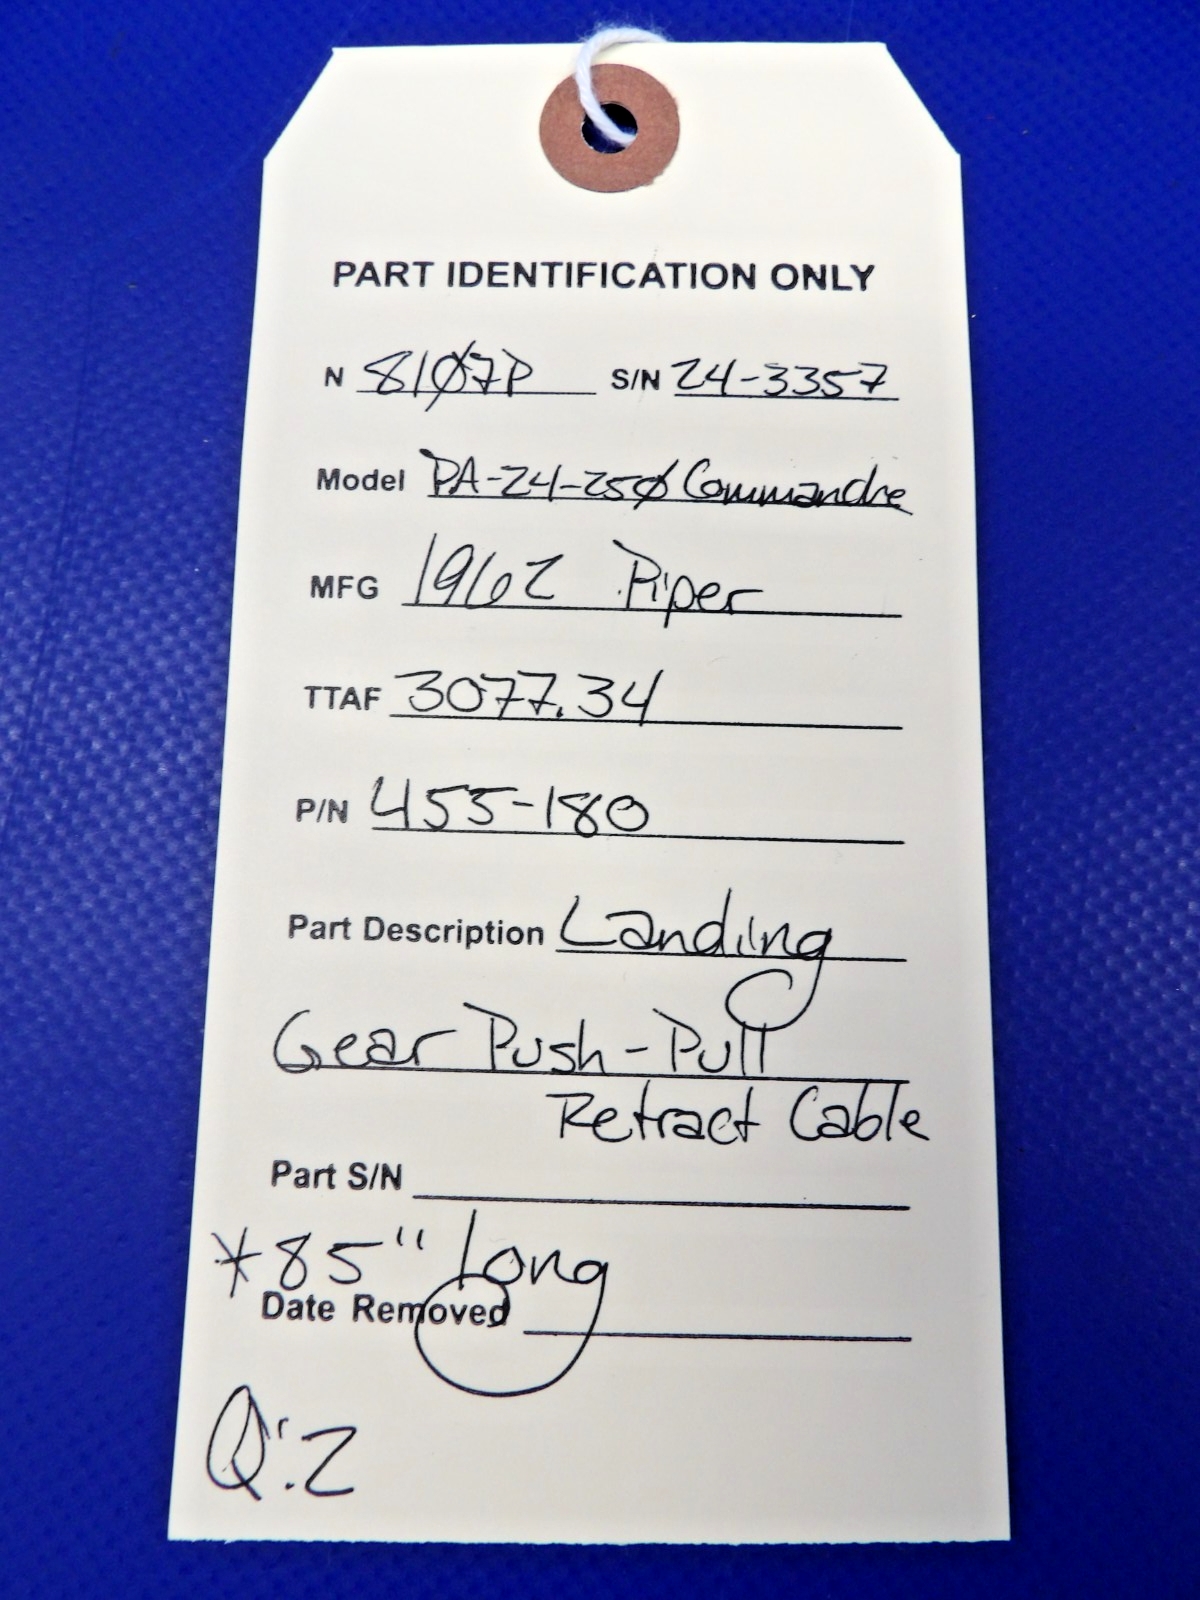 PART IDENTIFICATION ONLY
N 8107P S/N 24-3357
Model PA-24-250 Commanche
MFG 1962 Piper
TTAF 3077.34
P/N 455-180
Part Description Landing
Gear Push-Pull
Retract Cable
Part S/N
*85" Long
Date Removed
Q:2